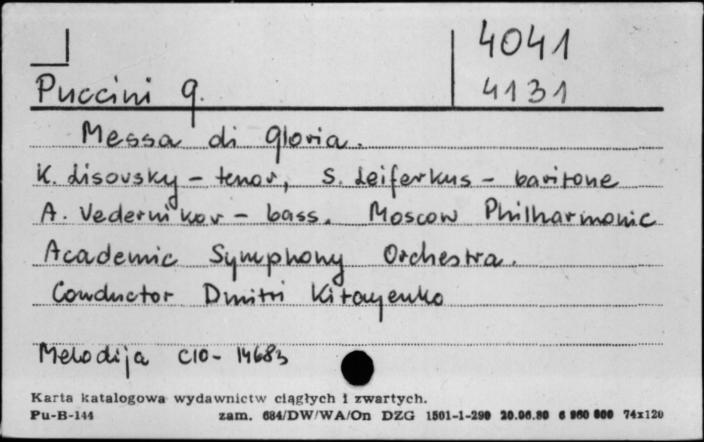 4041
Puccini G.
4131
Messa di Gloria.
K. Lisovsky - tenor, S. Leiferkus - baritone
A. Vedernikov - bass. Moscow Philharmonic
Academic Symphony Orchestra.
Conductor Dmitri Kitayenko
Melodija C10-14683
Karta katalogowa wydawnictw ciągłych i zwartych.
Pu-B-144 zam. 684/DW/WA/On DZG 1501-1-290 20.06.80 6 960 000 74x120